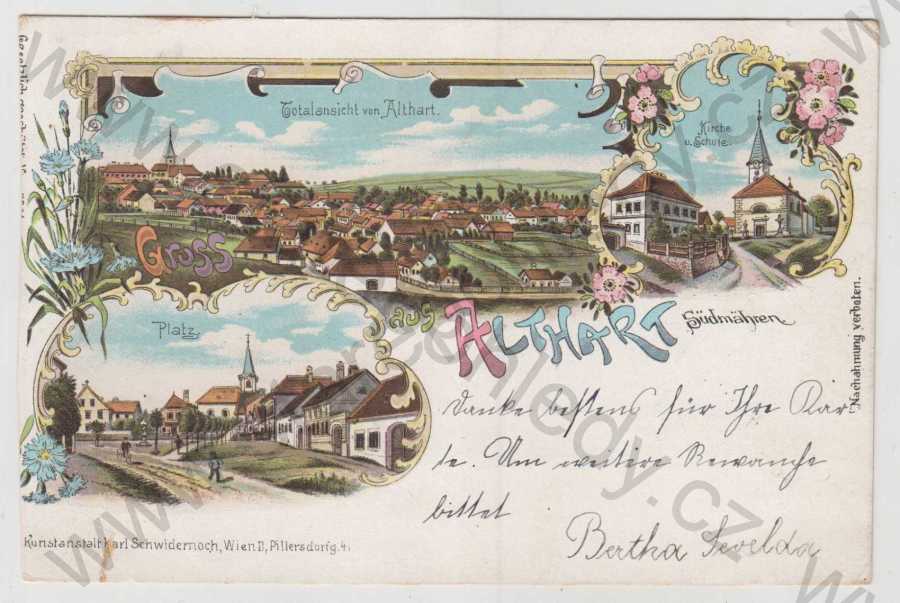 Totalansicht von Althart.
Kirche
u. Schule.
Gruss
aus ALTHART Südmähren.
Platz
Danke bestens für Ihre Kar
te. Um weitere Rewanche
bittet
Bertha Sevelda
Nachahmung verboten.
Kunstanstalt Karl Schwidernoch, Wien II, Pillersdorfg. 4.